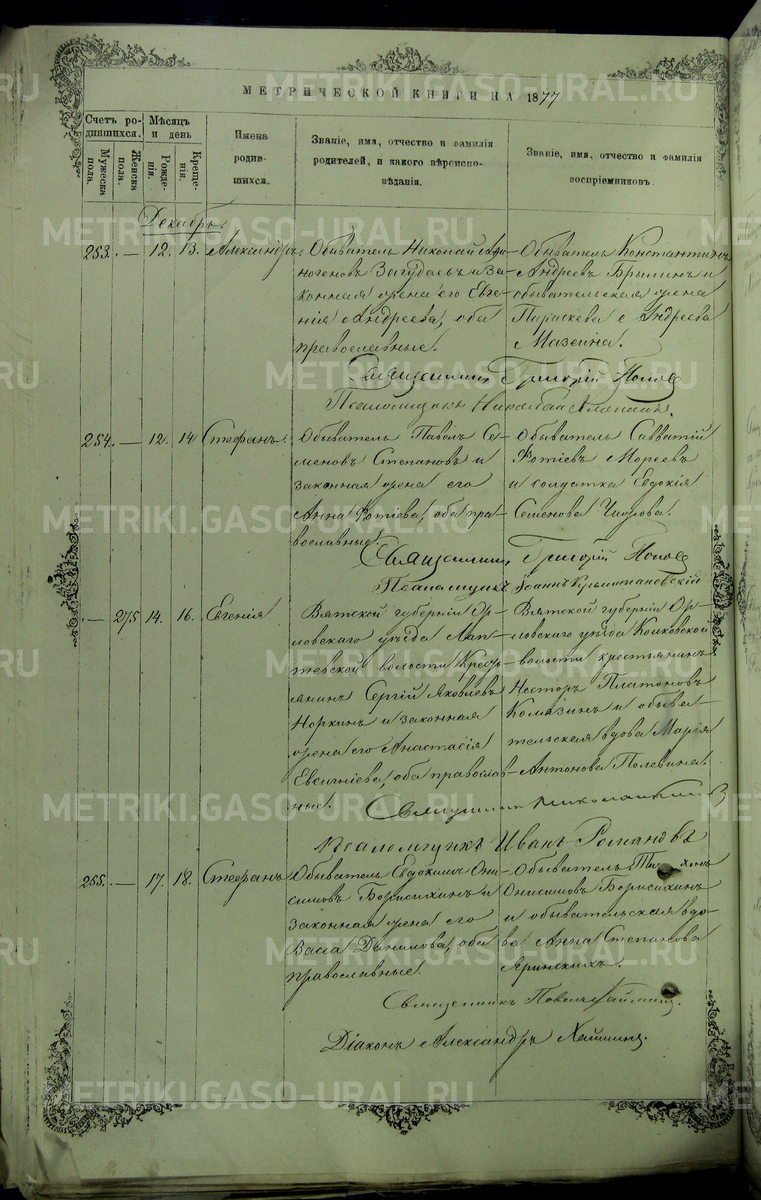 МЕТРИЧЕСКОЙ КНИГИ НА 1877
Счетъ родившихся.
Мужеска пола.
Женска пола.
Мѣсяцъ и день
Рожденія.
Крещенія.
Имена родившихся.
Званіе, имя, отчество и фамилія родителей, и какого вѣроисповѣданія.
Званіе, имя, отчество и фамилія воспріемниковъ.
Декабрь.
253. — 12. 13. Александръ.
Обыватель Николай
ногеновъ Загудаевъ и за-
конная жена его Евге-
нія Андреева, оба
православные.
Обыватель Константинъ
Андреевъ Брылинъ и
обывательская жена
Параскева Андреева
Мазеина.
Священникъ Григорій Попов
Псаломщикъ
254. — 12. 14. Стефанъ.
Обыватель Павелъ Се-
меновъ Степановъ и
законная жена его
Анна Фотіева, оба пра-
вославные.
Обыватель Савватій
Фотіевъ Мореевъ
и солдатка Евдокія
Семенова
Священникъ Григорій Попов
Псаломщикъ Іоаннъ
— 275 14. 16. Евгенія
Вятской губерніи Ор-
ловскаго уѣзда
волости Крестъ-
янинъ Сергій Яковлевъ
Норкинъ и законная
жена его Анастасія
оба православ-
ные.
Вятской губерніи Ор-
ловскаго уѣзда
волости крестьянинъ
Несторъ Платоновъ
и обыва-
тельская вдова Марія
Антонова Полевина.
Священникъ
Псаломщикъ Иванъ Романовъ
255. — 17. 18. Стефанъ
Обыватель Евдокимъ Они-
симовъ Борисихинъ и
законная жена его
Васса Данилова, оба
православные.
Обыватель Тихонъ
Онисимовъ Борисихинъ
и обывательская вдо-
ва Анна Степанова
Яринскихъ.
Священникъ Павелъ
Діаконъ Александръ
METRIKI.GASO-URAL.RU